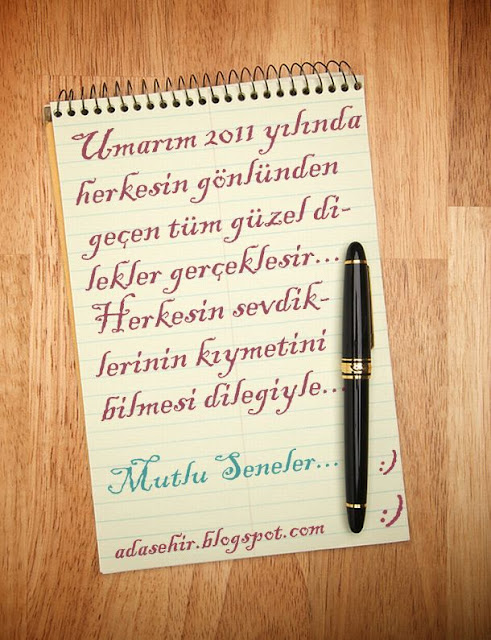 Umarım 2011 yılında
herkesin gönlünden
geçen tüm güzel di-
lekler gerçeklesir...
Herkesin sevdik-
lerinin kıymetini
bilmesi dilegiyle...
Mutlu Seneler... :)
:)
adasehir.blogspot.com